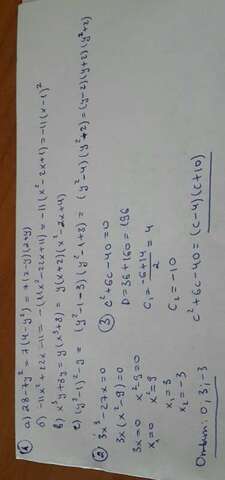 ① а) 28-7y²= 7(4-y²)=7(2-y)(2+y)
б) -11x²+22x-11=-11(x²-2x+1)=-11(x²-2x+1)=-11(x-1)²
в) x³y+8y=y(x³+8)=y(x+2)(x²-2x+4)
г) (y²-1)²-9=(y²-1-3)(y²-1+3)=(y²-4)(y²+2)=(y-2)(y+2)(y²+2)
② 3x³-27x=0
3x(x²-9)=0
3x=0 x²-9=0
x₁=0 x²=9
x₁=3
x₂=-3
Ответ: 0; 3; -3
③ c²+6c-40=0
D=36+160=196
c₁=-6+14/2=4
c₂=-10
c²+6c-40=(c-4)(c+10)